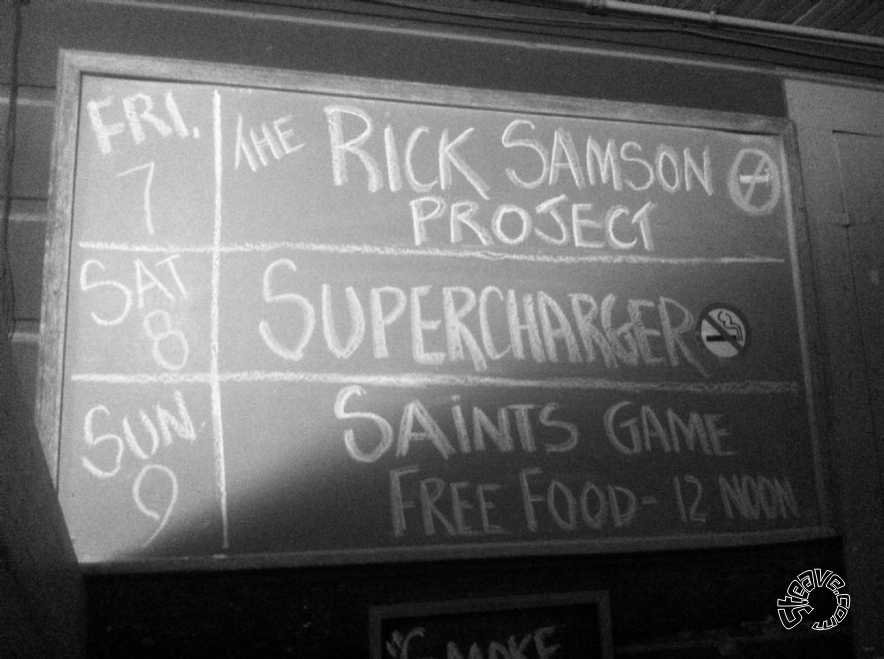 FRI. THE RICK SAMSON
7 PROJECT
SAT SUPERCHARGER
8
SUN. SAINTS GAME
9 FREE FOOD - 12 NOON
Steave.com